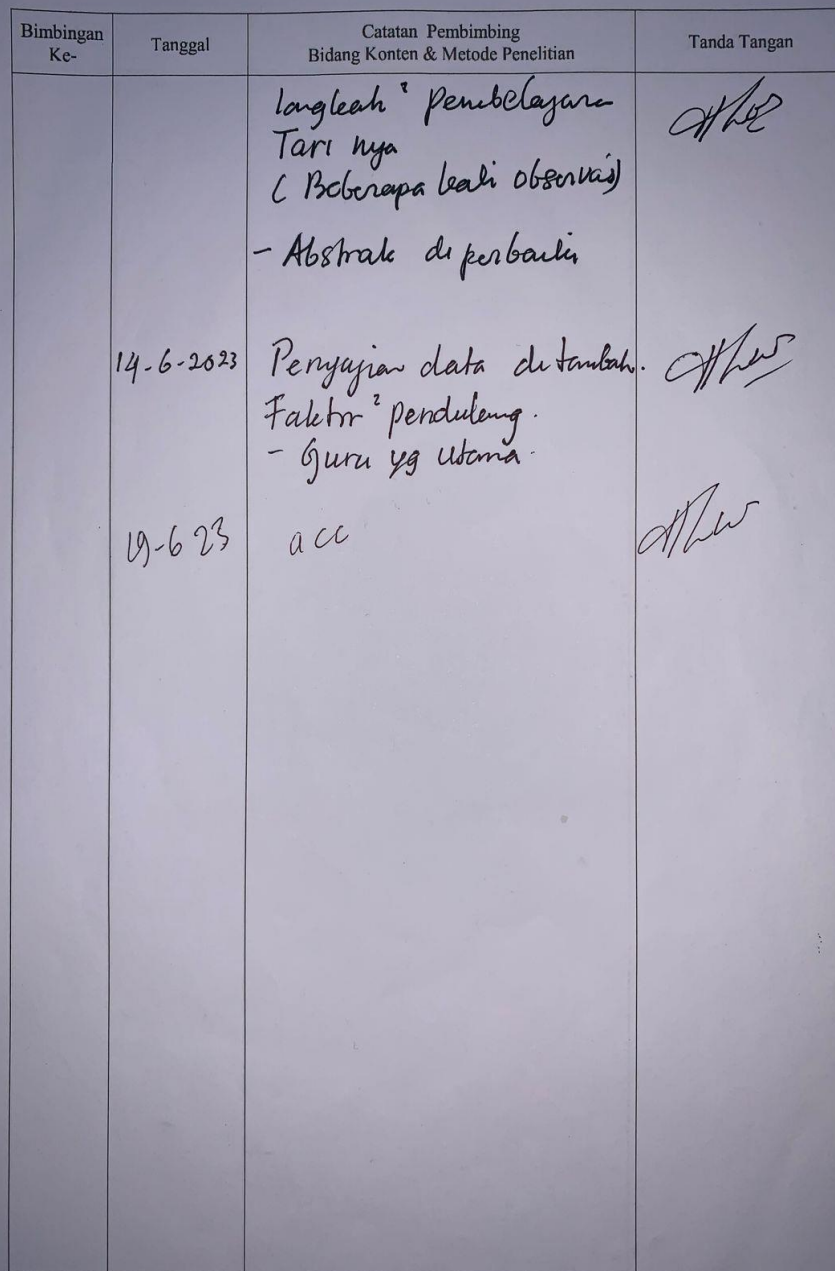 Bimbingan Ke-
Tanggal
Catatan Pembimbing
Bidang Konten & Metode Penelitian
Tanda Tangan
langkah² pembelajaran
Tari nya
( Beberapa kali observasi)
- Abstrak di perbaiki
14-6-2023 Penyajian data ditambah.
Faktor² pendukung.
- Guru yg utama.
19-6 23 acc